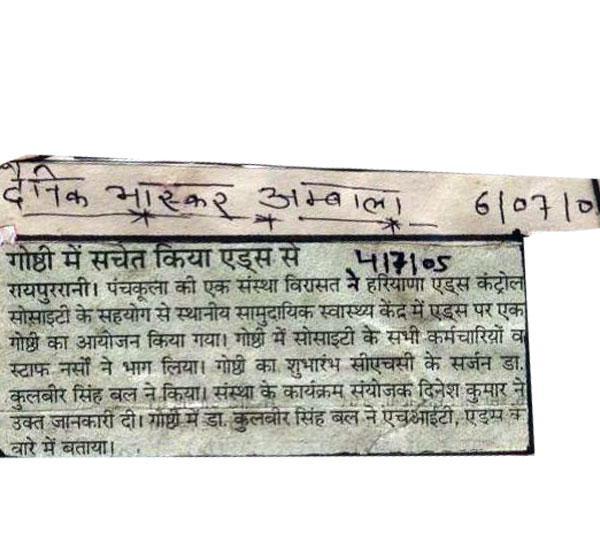 दैनिक भास्कर अम्बाला 6/07/0
गोष्ठी में सचेत किया एड्स से 4/7/05
रायपुररानी। पंचकूला की एक संस्था विरासत ने हरियाणा एड्स कंट्रोल
सोसाइटी के सहयोग से स्थानीय सामुदायिक स्वास्थ्य केंद्र में एड्स पर एक
गोष्ठी का आयोजन किया गया। गोष्ठी में सोसाइटी के सभी कर्मचारियों व
स्टाफ नर्सों ने भाग लिया। गोष्ठी का शुभारंभ सीएचसी के सर्जन डा.
कुलबीर सिंह बल ने किया। संस्था के कार्यक्रम संयोजक दिनेश कुमार ने
उक्त जानकारी दी। गोष्ठी में डा. कुलबीर सिंह बल ने एचआईटी, एड्स के
बारे में बताया।